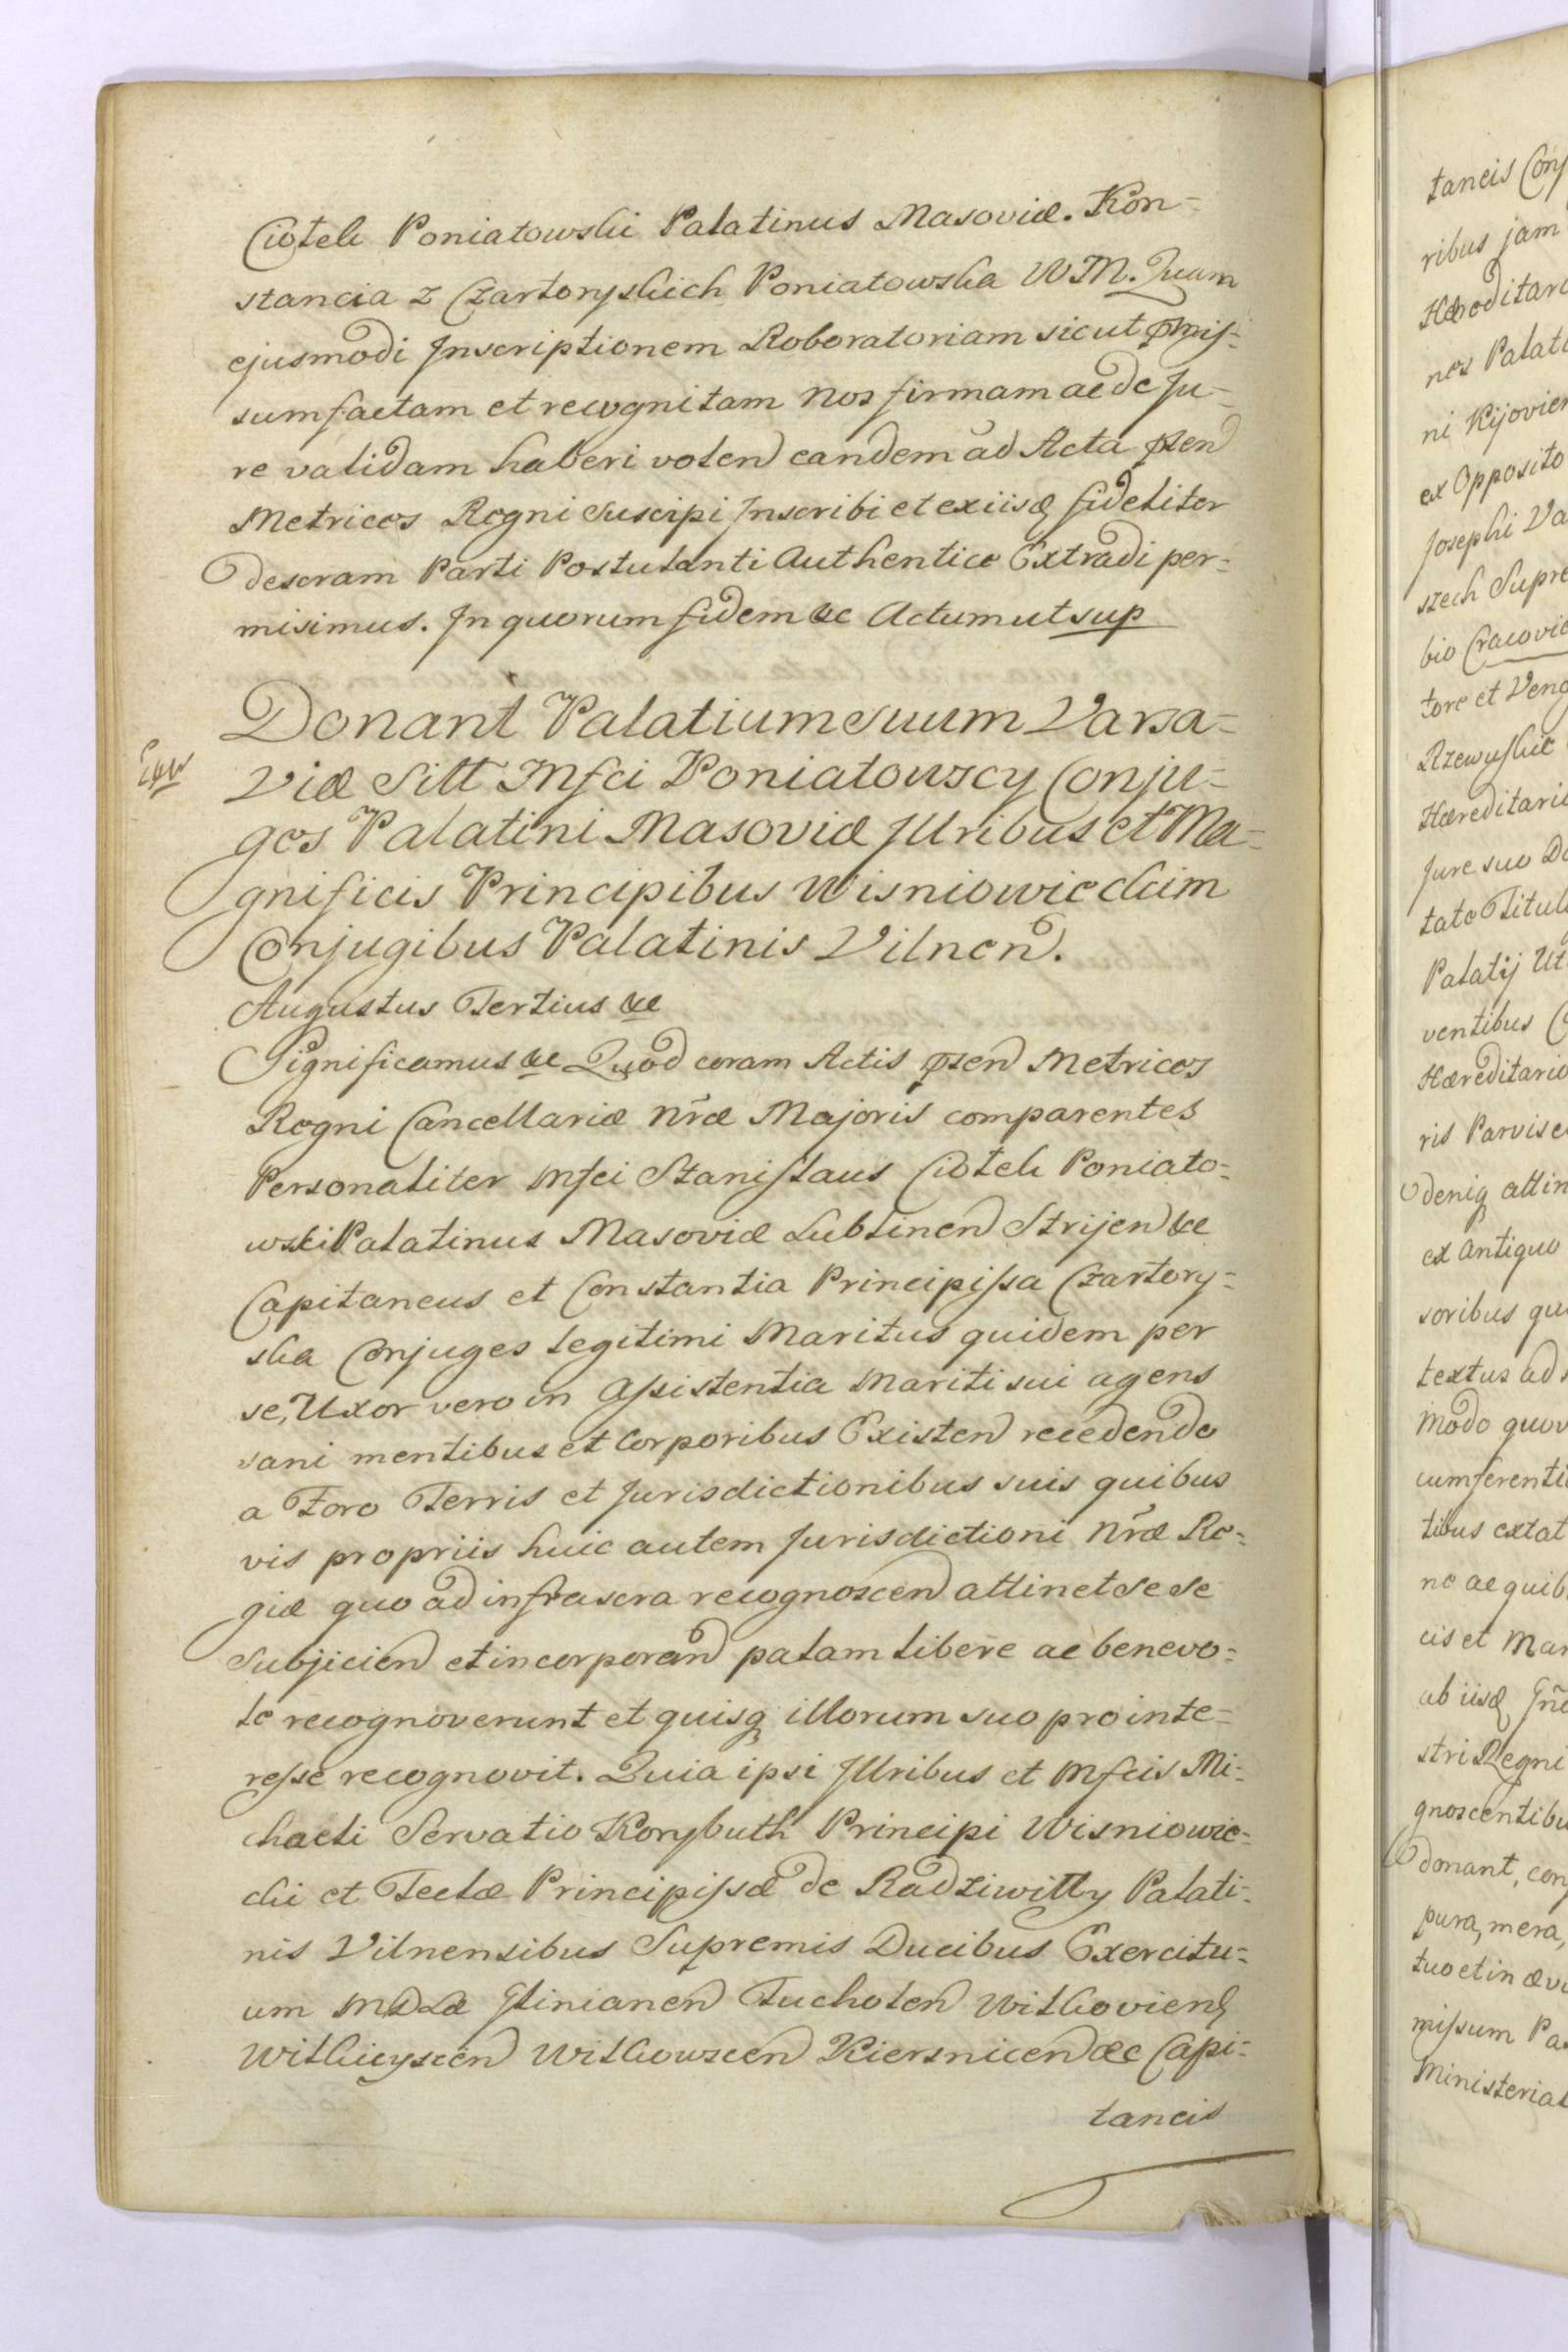 Ciotek Poniatowski Palatinus Masoviæ. Kon=
stancia z Czartoryskich Poniatowska WM. Quam
ejusmodi Inscriptionem Roboratoriam sicut pmis=
sum factam et recognitam Nos firmam ac de Ju=
re validam haberi volen eandem ad Acta psen
Metrices Regni suscipi Inscribi et ex iisq fideliter
descram Parti Postulanti Authentice Extradi per=
misimus. In quorum fidem &c Actum ut sup
Donant Palatium suum Varsa=
viæ Sitt Mfci Poniatowscy Conju=
ges Palatini Masoviæ Illribus et Ma=
gnificis Principibus Wisniowieckim
Conjugibus Palatinis Vilnen.
Augustus Tertius &c
Significamus &c Quod coram Actis psen Metrices
Regni Cancellariæ Nræ Majoris comparentes
Personaliter Mfci Stanislaus Ciotek Poniato=
wski Palatinus Masoviæ Lublinen Strijen &c
Capitaneus et Constantia Principissa Czartory=
ska Conjuges legitimi Maritus quidem per
se, Uxor vero in Assistentia Mariti sui agens
sani mentibus et Corporibus Existen recedendo
a Foro Terris et Jurisdictionibus suis quibus
vis propriis huic autem Jurisdictioni Nræ Re=
giæ quo ad infrascra recognoscen attinet se se
Subjicien et incorporan palam libere ac benevo=
le recognoverunt et quisq illorum suo pro inte=
resse recognovit. Quia ipsi Illribus et Mfcis Mi=
chaeli Servatio Korybuth Principi Wisniowie=
cki et Teclæ Principissæ de Radziwilly Palati=
nis Vilnensibus Supremis Ducibus Exercitu=
um MDLæ Glinianen Tucholen Wilkovien
Wilkieyscen Wilkowscen Kiersnicen &c Capi=
taneis
taneis
ribus jam
Hæreditar
nos Palat
ni Kijovien
ex Opposito
Josephi Va
szech Supre
bio Cracovie
tore et Veng
Rzewuskie
Hæreditari
Jure suo D
tate Titul
Palatij Ut
ventibus
Hæreditario
ris Parvis
deniq attin
ex antiquo
soribus qu
textus ad
modo quov
cumferenti
tibus extat
no ac quib
cis et Mar
ab iisq
stri Regni
gnoscentibu
donant, con
pura, mera,
tuo et in ævu
missum Pa
Ministerial